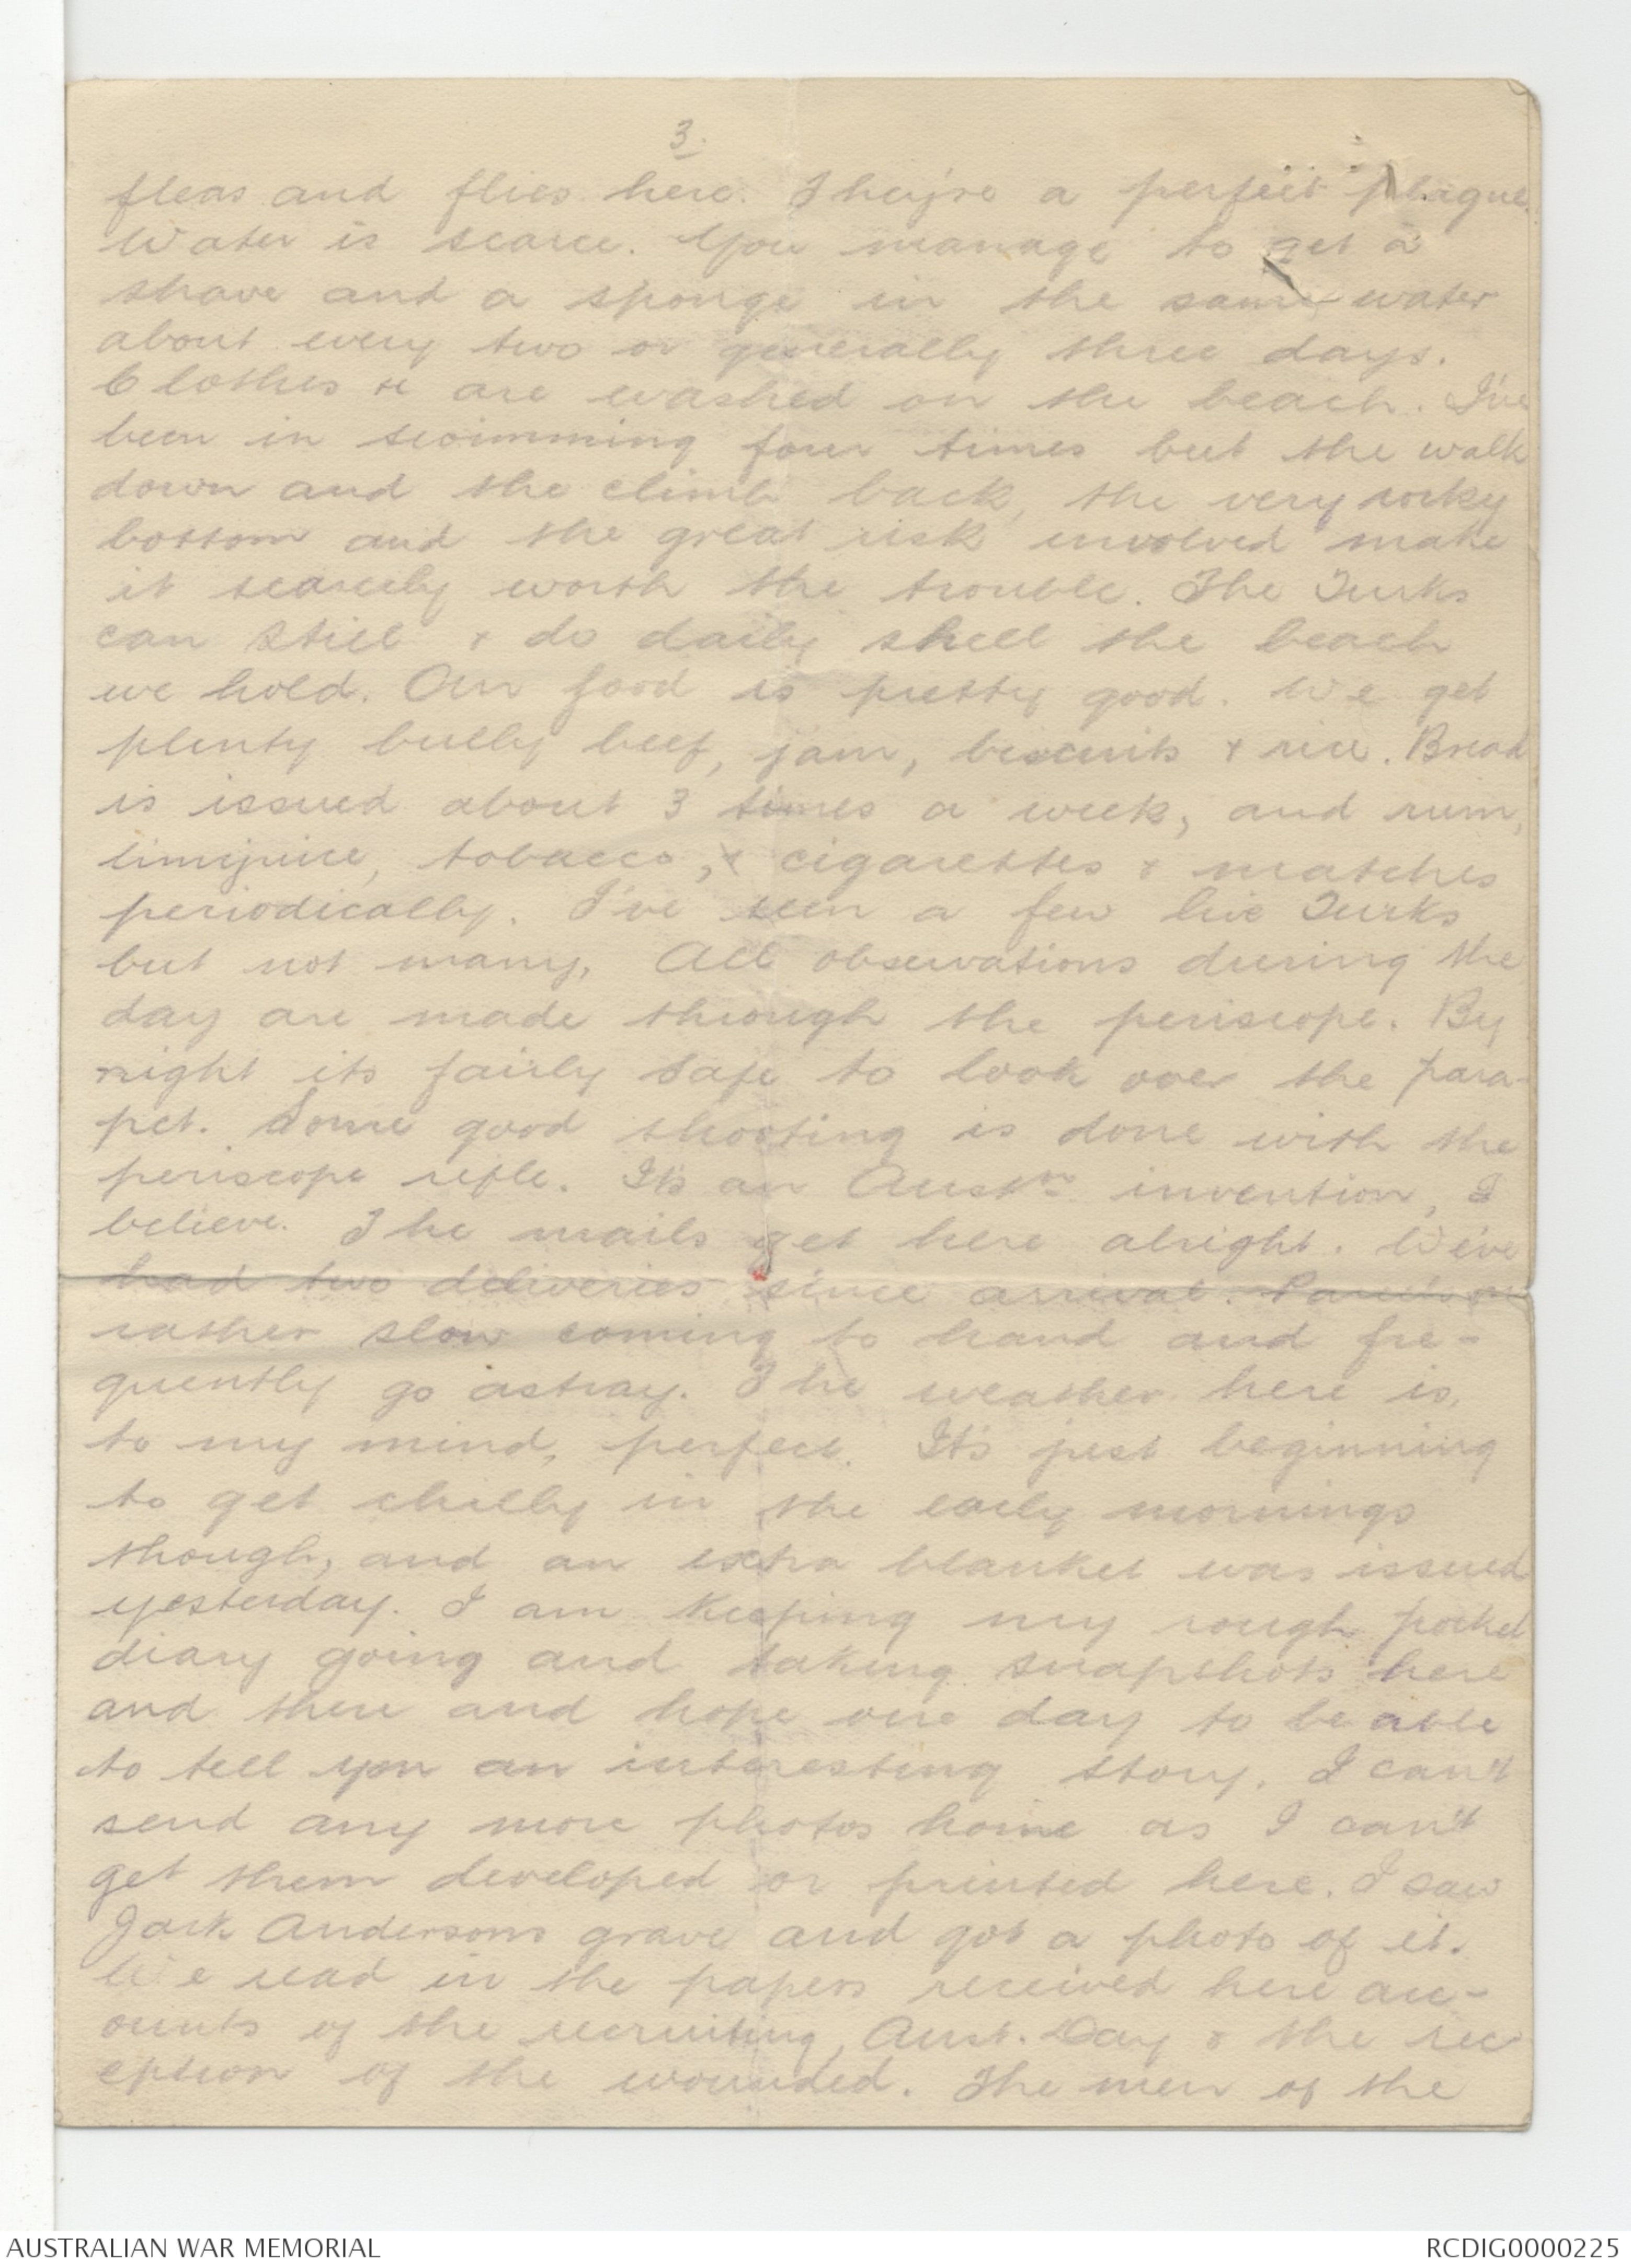 3.
fleas and flies here. They're a perfect plague.
Water is scarce. You manage to get a
shave and a sponge in the same water
about every two or generally three days.
Clothes &c are washed on the beach. I've
been in swimming four times but the walk
down and the climb back, the very rocky
bottom and the great risk involved make
it scarcely worth the trouble. The Turks
can still & do daily shell the beach
we hold. Our food is pretty good. We get
plenty bully beef, jam, biscuits & rice. Bread
is issued about 3 times a week, and rum,
limejuice, tobacco, & cigarettes & matches
periodically. I've seen a few live Turks
but not many. All observations during the
day are made through the periscope. By
night its fairly safe to look over the para-
pet. Some good shooting is done with the
periscope rifle. Its an Austrn invention, I
believe. The mails get here alright. We've
had two deliveries since arrival. Parcels are
rather slow coming to hand and fre-
quently go astray. The weather here is,
to my mind, perfect. It's just beginning
to get chilly in the early mornings
though, and an extra blanket was issued
yesterday. I am keeping my rough pocket
diary going and taking snapshots here
and there and hope one day to be able
to tell you an interesting story. I can't
send any more photos home as I can't
get them developed or printed here. I saw
Jack Andersons grave and got a photo of it.
We read in the papers received here acc-
ounts of the recruiting, Aust. Day & the rec-
eption of the wounded. The men of the
AUSTRALIAN WAR MEMORIAL
RCDIG0000225